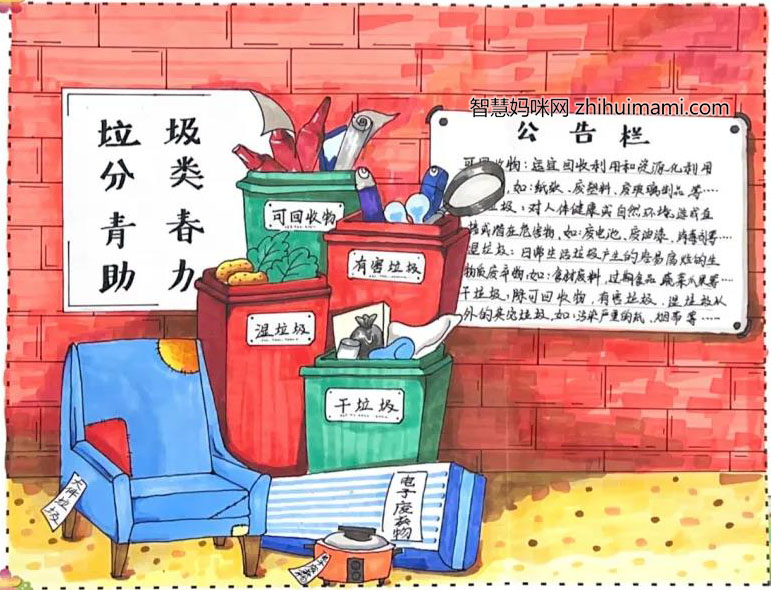 智慧妈咪网 zhihuimami.com
垃 圾
分 类
青 春
助 力
公 告 栏
可回收物:适宜回收利用和资源化利用
,如:纸张、废塑料、废玻璃制品等……
垃圾:对人体健康或自然环境造成直
接或潜在危害物,如:废电池、废油漆、消毒剂等……
湿垃圾:日常生活垃圾产生的容易腐烂的生
物质废弃物,如:食材废料,过期食品 蔬菜瓜果等……
干垃圾,除可回收物,有害垃圾、湿垃圾以
外的其它垃圾,如:污染严重的纸、烟蒂等……
可回收物
有害垃圾
湿垃圾
干垃圾
大件垃圾
电子废弃物